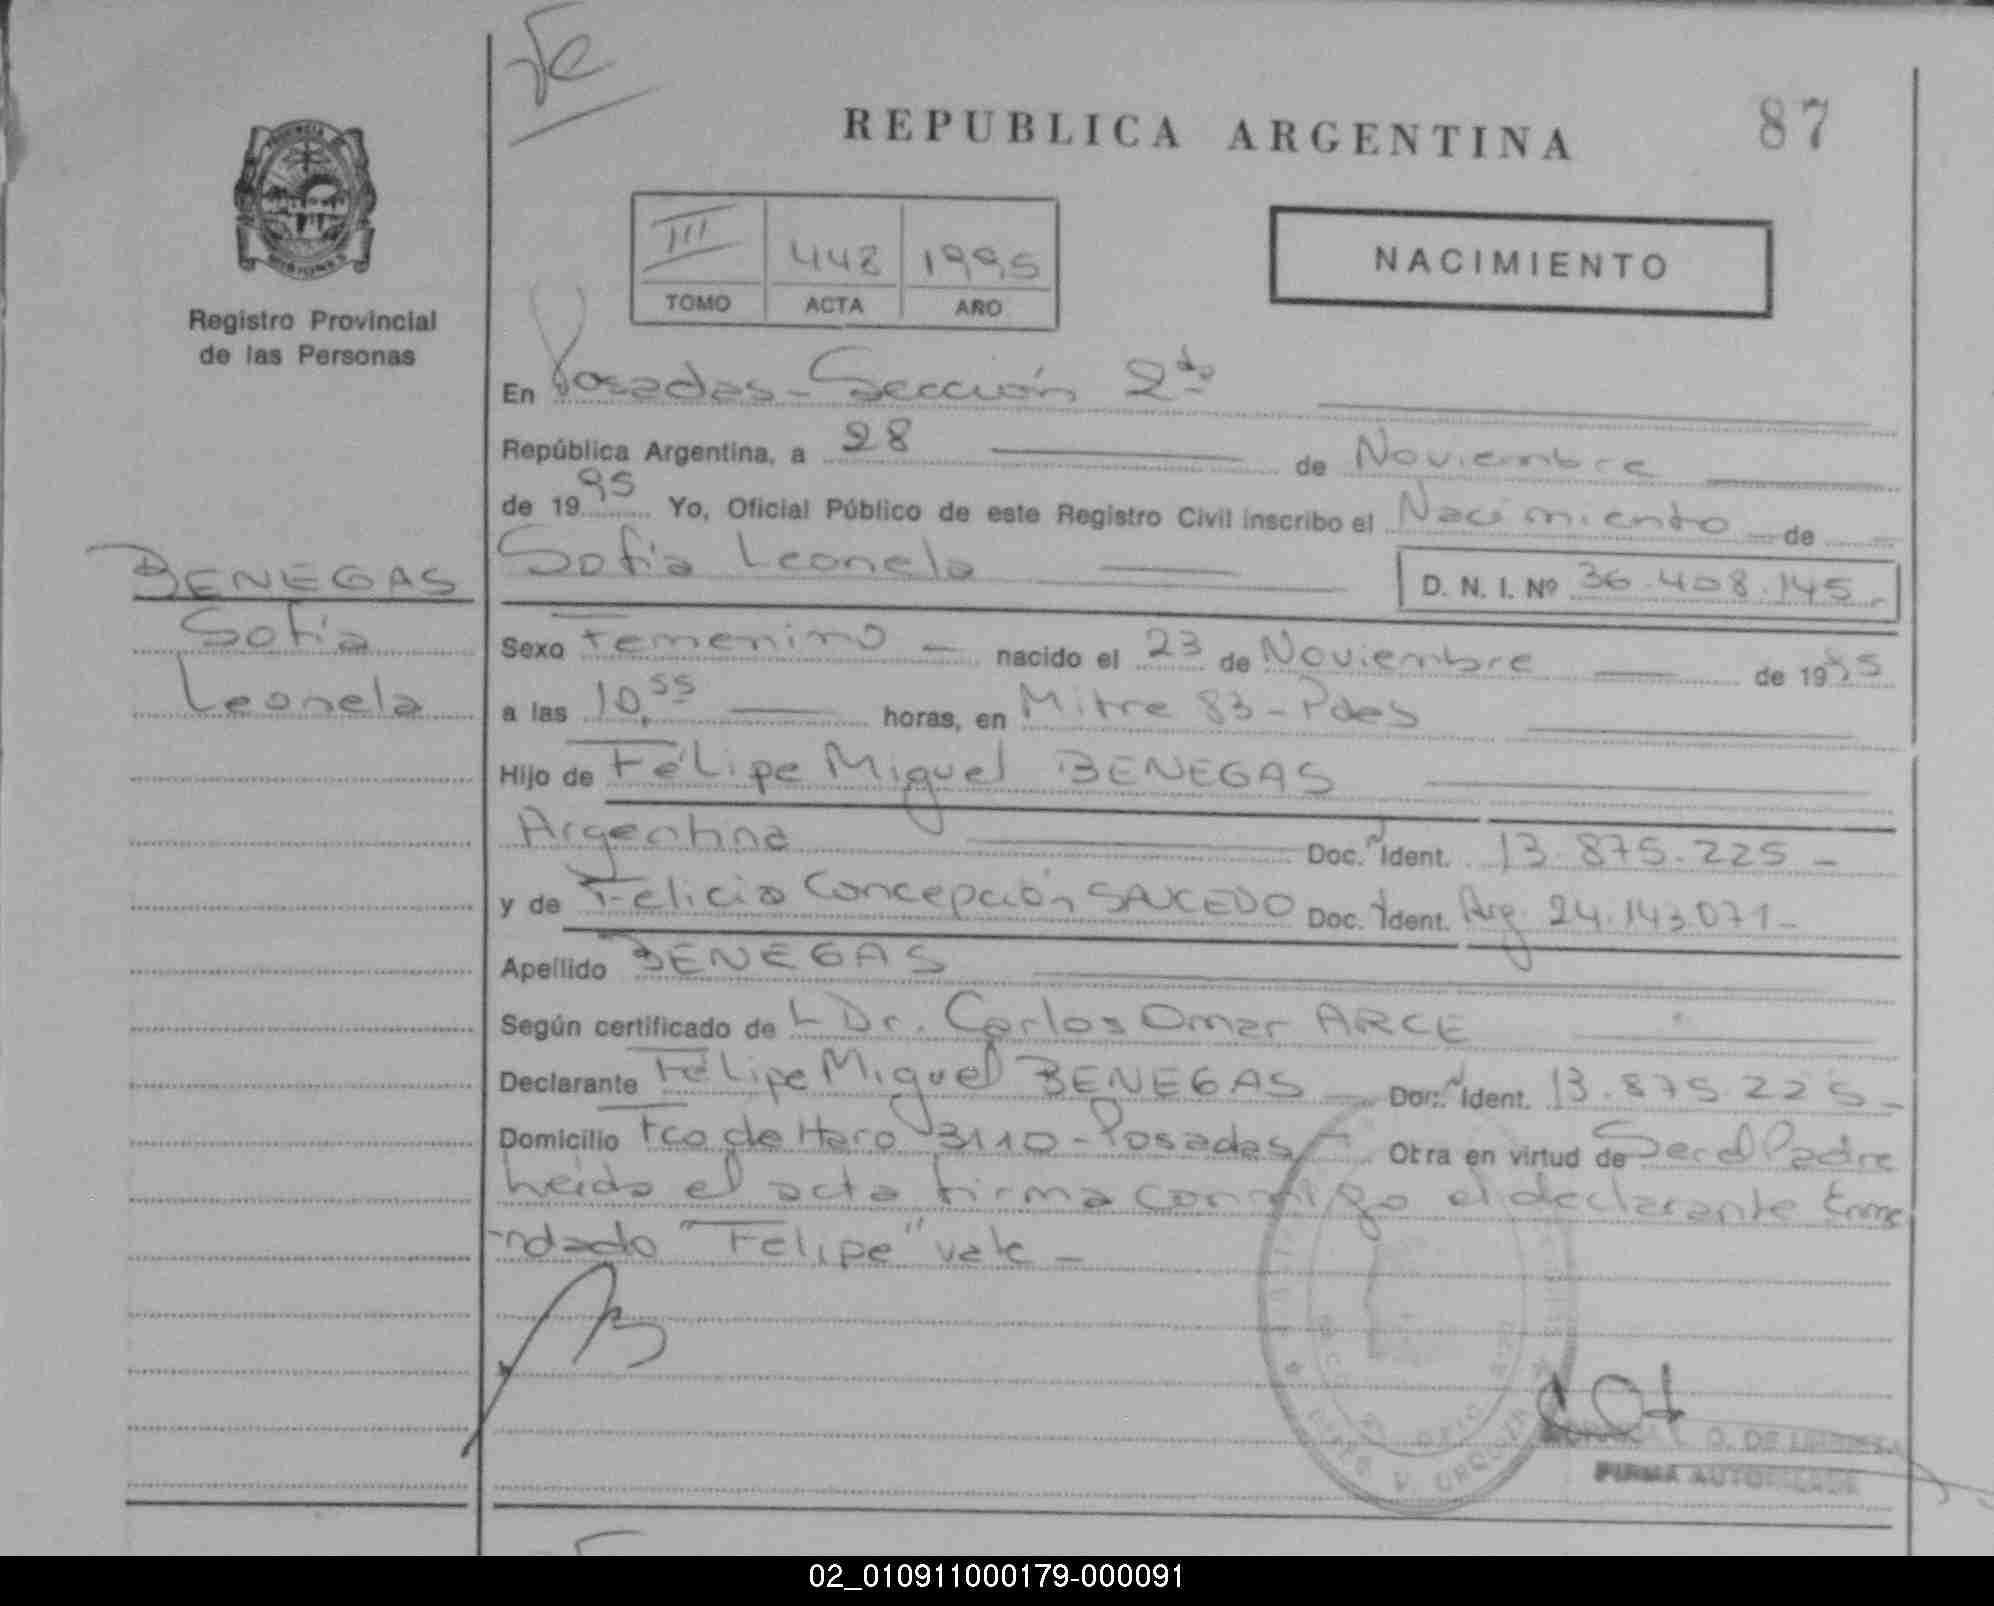 REPUBLICA ARGENTINA
87
PROVINCIA
MISIONES
Registro Provincial
de las Personas
III 448 1995
TOMO ACTA AÑO
NACIMIENTO
En Posadas - Sección 2da
República Argentina, a 28 de Noviembre
de 1995 Yo, Oficial Público de este Registro Civil inscribo el Nacimiento de
Sofia Leonela D. N. I. Nº 36.408.145
BENEGAS
Sofia
Leonela
Sexo Femenino - nacido el 23 de Noviembre de 1995
a las 10,55 horas, en Mitre 83 - Pdas
Hijo de Felipe Miguel BENEGAS
Argentina Doc. Ident. 13.875.225 -
y de Felicia Concepción SAUCEDO Doc. Ident. Arg. 24.143.071 -
Apellido BENEGAS
Según certificado de L Dr. Carlos Omar ARCE
Declarante Felipe Miguel BENEGAS - Doc. Ident. 13.875.225 -
Domicilio Fco de Haro 3110 - Posadas - Otra en virtud de Ser el Padre
Leida el acta firma conmigo el declarante Enme
-ndado "Felipe" vale -
O. DE
FIRMA AUTORIZADA
02_010911000179-000091